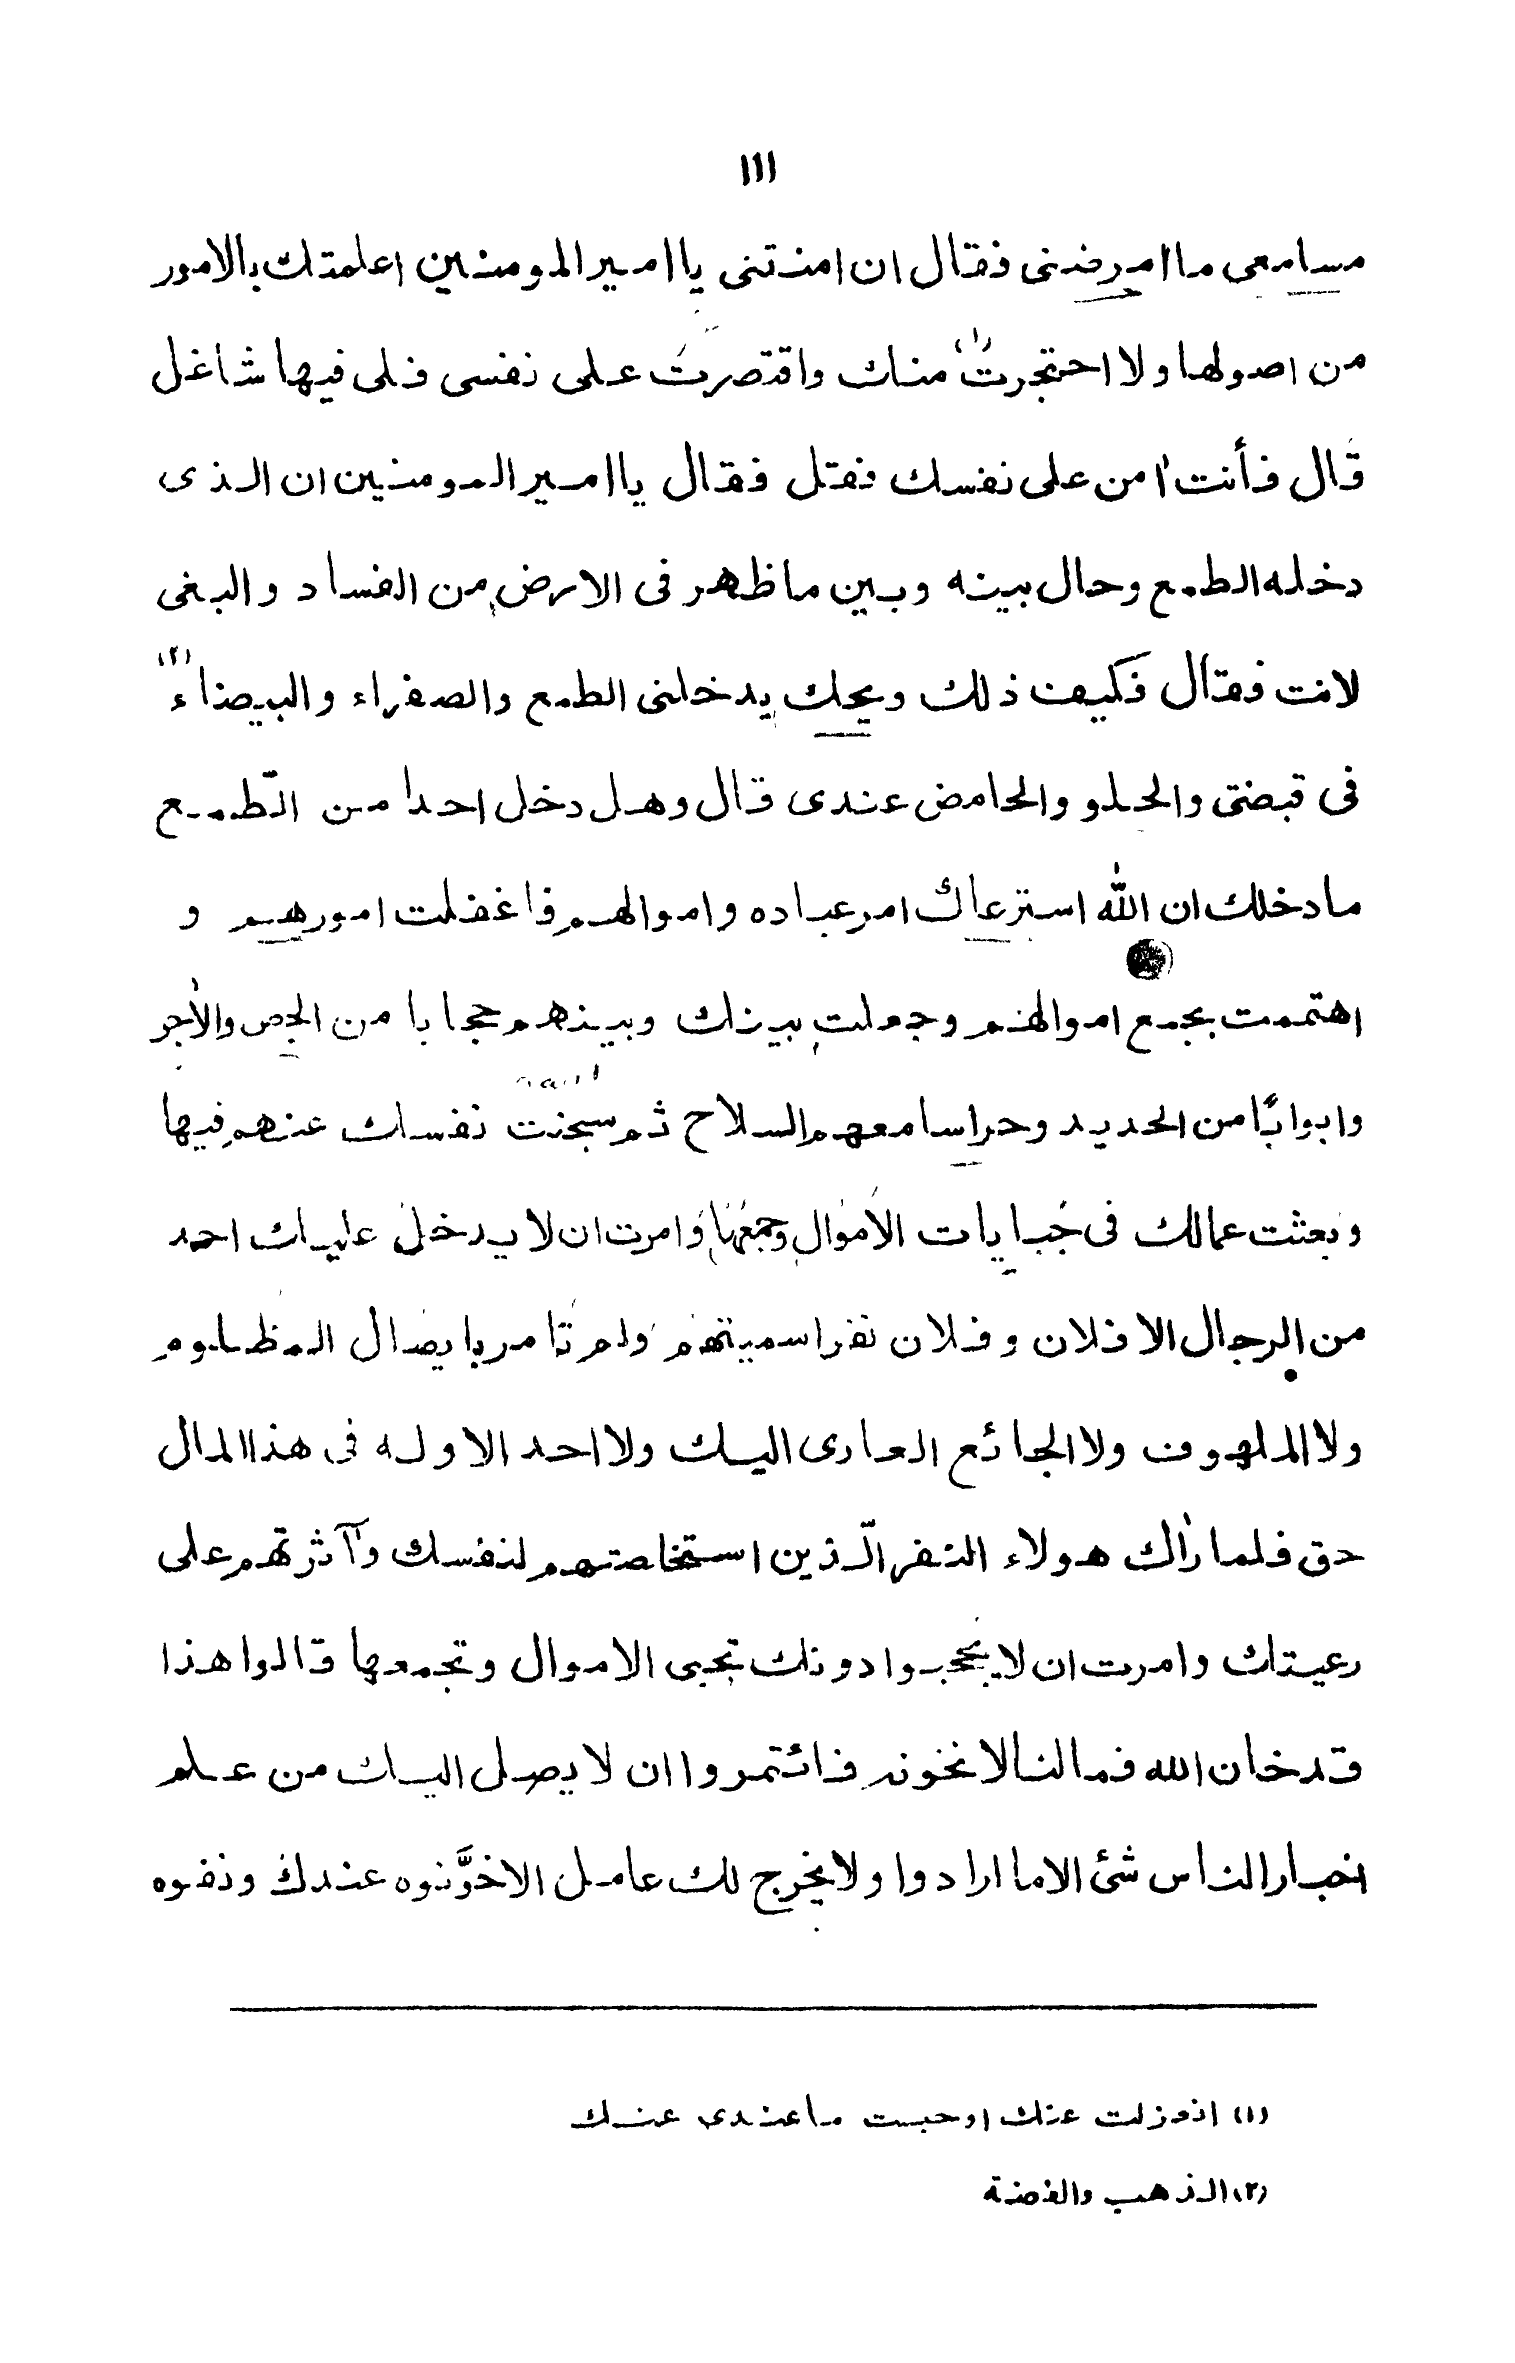 ١١١
مسامعى ما امرضنى فقال ان امنتنى يا امير المومنين اعلمتك بالامور
من اصولها ولا احتجرتُ (١) منك واقتصرتُ على نفسى فلى فيها شاغل
قال فأنت اٰمن على نفسك فقل فقال يا امير المومنين ان الذى
دخله الطمع وحال بينه وبين ما ظهر فى الارض من الفساد والبغى
لانت فقال فكيف ذلك ويحك يدخلنى الطمع والصفراء والبيضاء (٢)
فى قبضتى والحلو والحامض عندى قال وهل دخل احدا من الطّمع
ما دخلك ان اللّٰه استرعاك امر عباده واموالهم فاغفلت امورهم و
اهتممت بجمع اموالهم وجعلت بينك وبينهم حجابا من الجص والاٰجر
وابوابًا من الحديد وحراسا معهم السلاح ثم سجنت نفسك عنهم فيها
وبعثت عمالك فى جبايات الاموال وجمعها وامرت ان لا يدخل عليك احد
من الرجال الا فلان وفلان نفرا سميتهم ولم تامر بايصال المظلوم
ولا الملهوف ولا الجائع العارى اليك ولا احد الا وله فى هذا المال
حق فلما رٰاك هولاء النفر الّذين استخلصتهم لنفسك وآثرتهم على
رعيتك وامرت ان لا يحجبوا دونك تجبى الاموال وتجمعها قالوا هذا
قد خان الله فما لنا لا نخونه فائتمروا ان لا يصل اليك من علم
اخبار الناس شئ الا ما ارادوا ولا يخرج لك عامل الا خوّنوه عندك ونفوه
(١) انعزلت عنك او حبست ما عندى عنك
(٢) الذهب والفضة